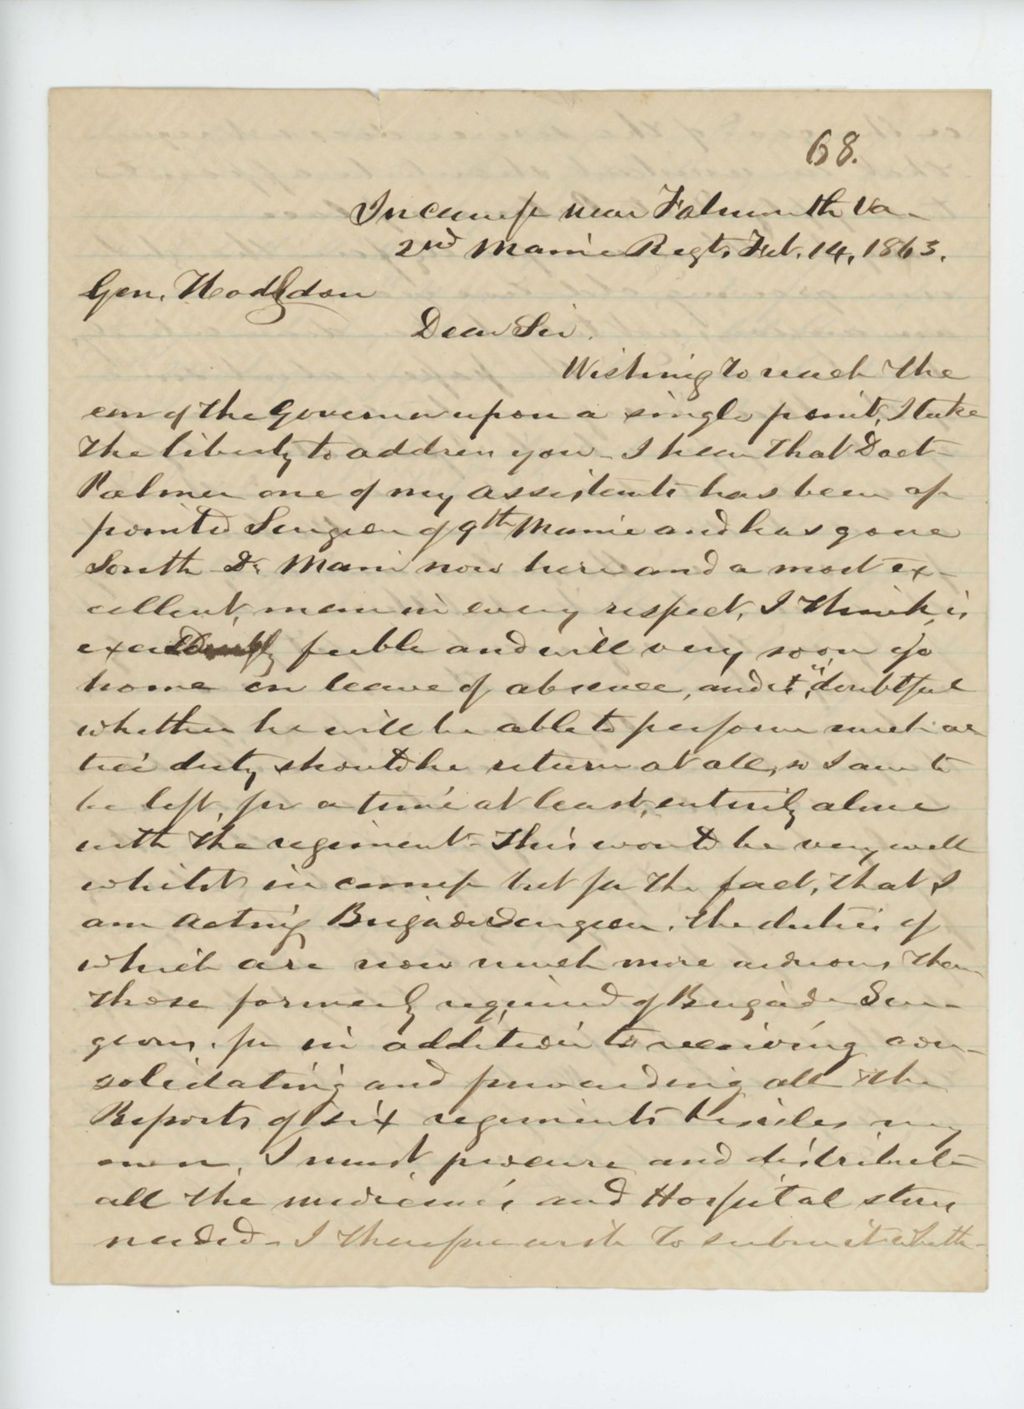 68.
In camp near Falmouth Va.
2nd Maine Regt. Feb. 14, 1863.
Gen. Hodsdon
Dear Sir.
Wishing to reach the
ear of the Governor upon a single point, I take
the liberty to address you. I hear that Doct
Palmer one of my assistants has been ap
pointed Surgeon of 9th Maine and has gone
South. Dr. Mann now here and a most ex-
cellent, man in every respect, I think, is
exceedingly feeble and will very soon go
home on leave of absence, and it is doubtful
whether he will be able to perform much ac
tive duty should he return at all, so I am to
be left, for a time at least, entirely alone
with the regiment. This would be very well
whilst in camp but for the fact, that I
am acting Brigade Surgeon, the duties of
which are now much more arduous than
those formerly required of Brigade Sur-
geons, for in addition to receiving con-
solidating and forwarding all the
Reports of six regiments besides my
own, I must procure and distribute
all the medicines and Hospital stores
needed. I therefore wish to submit wheth-